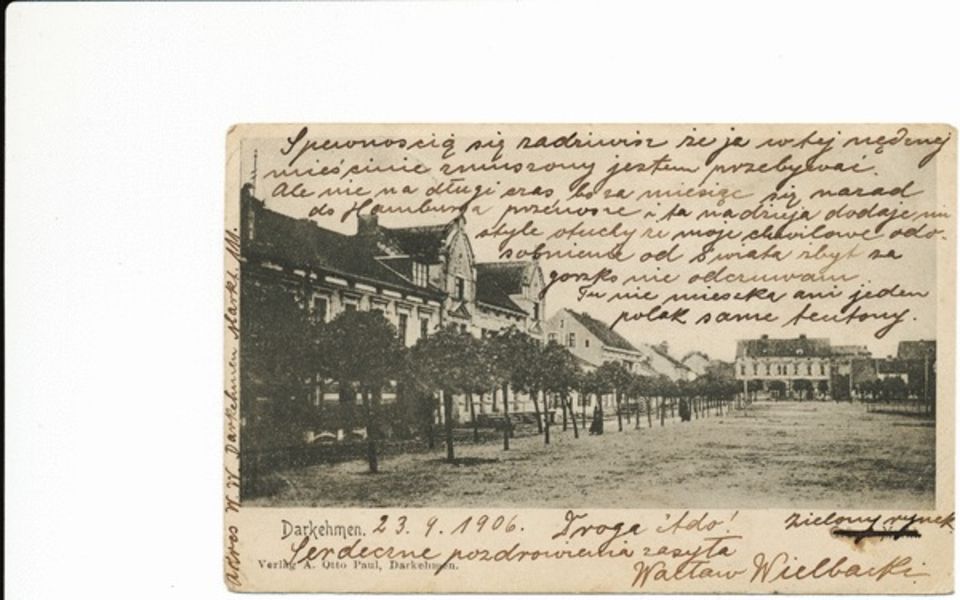 Spewnoscią się zadziwisz że ja w tej nędznej
mieścinie zmuszony jestem przebywać.
Ale nie na długi czas, bo za miesiąc się nazad
do Hamburga przenosze i ta nadzieja dodaje mi
style otuchy ze moje chwilowe odo-
sobnienie od Swiata zbyt za
gorzko nie odczuwam
Tu nie mieszka ani jeden
polak same teutony.
Adres W. W. Darkehmen Markt. 111.
Darkehmen. 23. 9. 1906. Droga Ado!
Zielony rynek
Serdeczne pozdrowienia zasyła
Verlag A. Otto Paul, Darkehmen.
Wacław Wielbacki